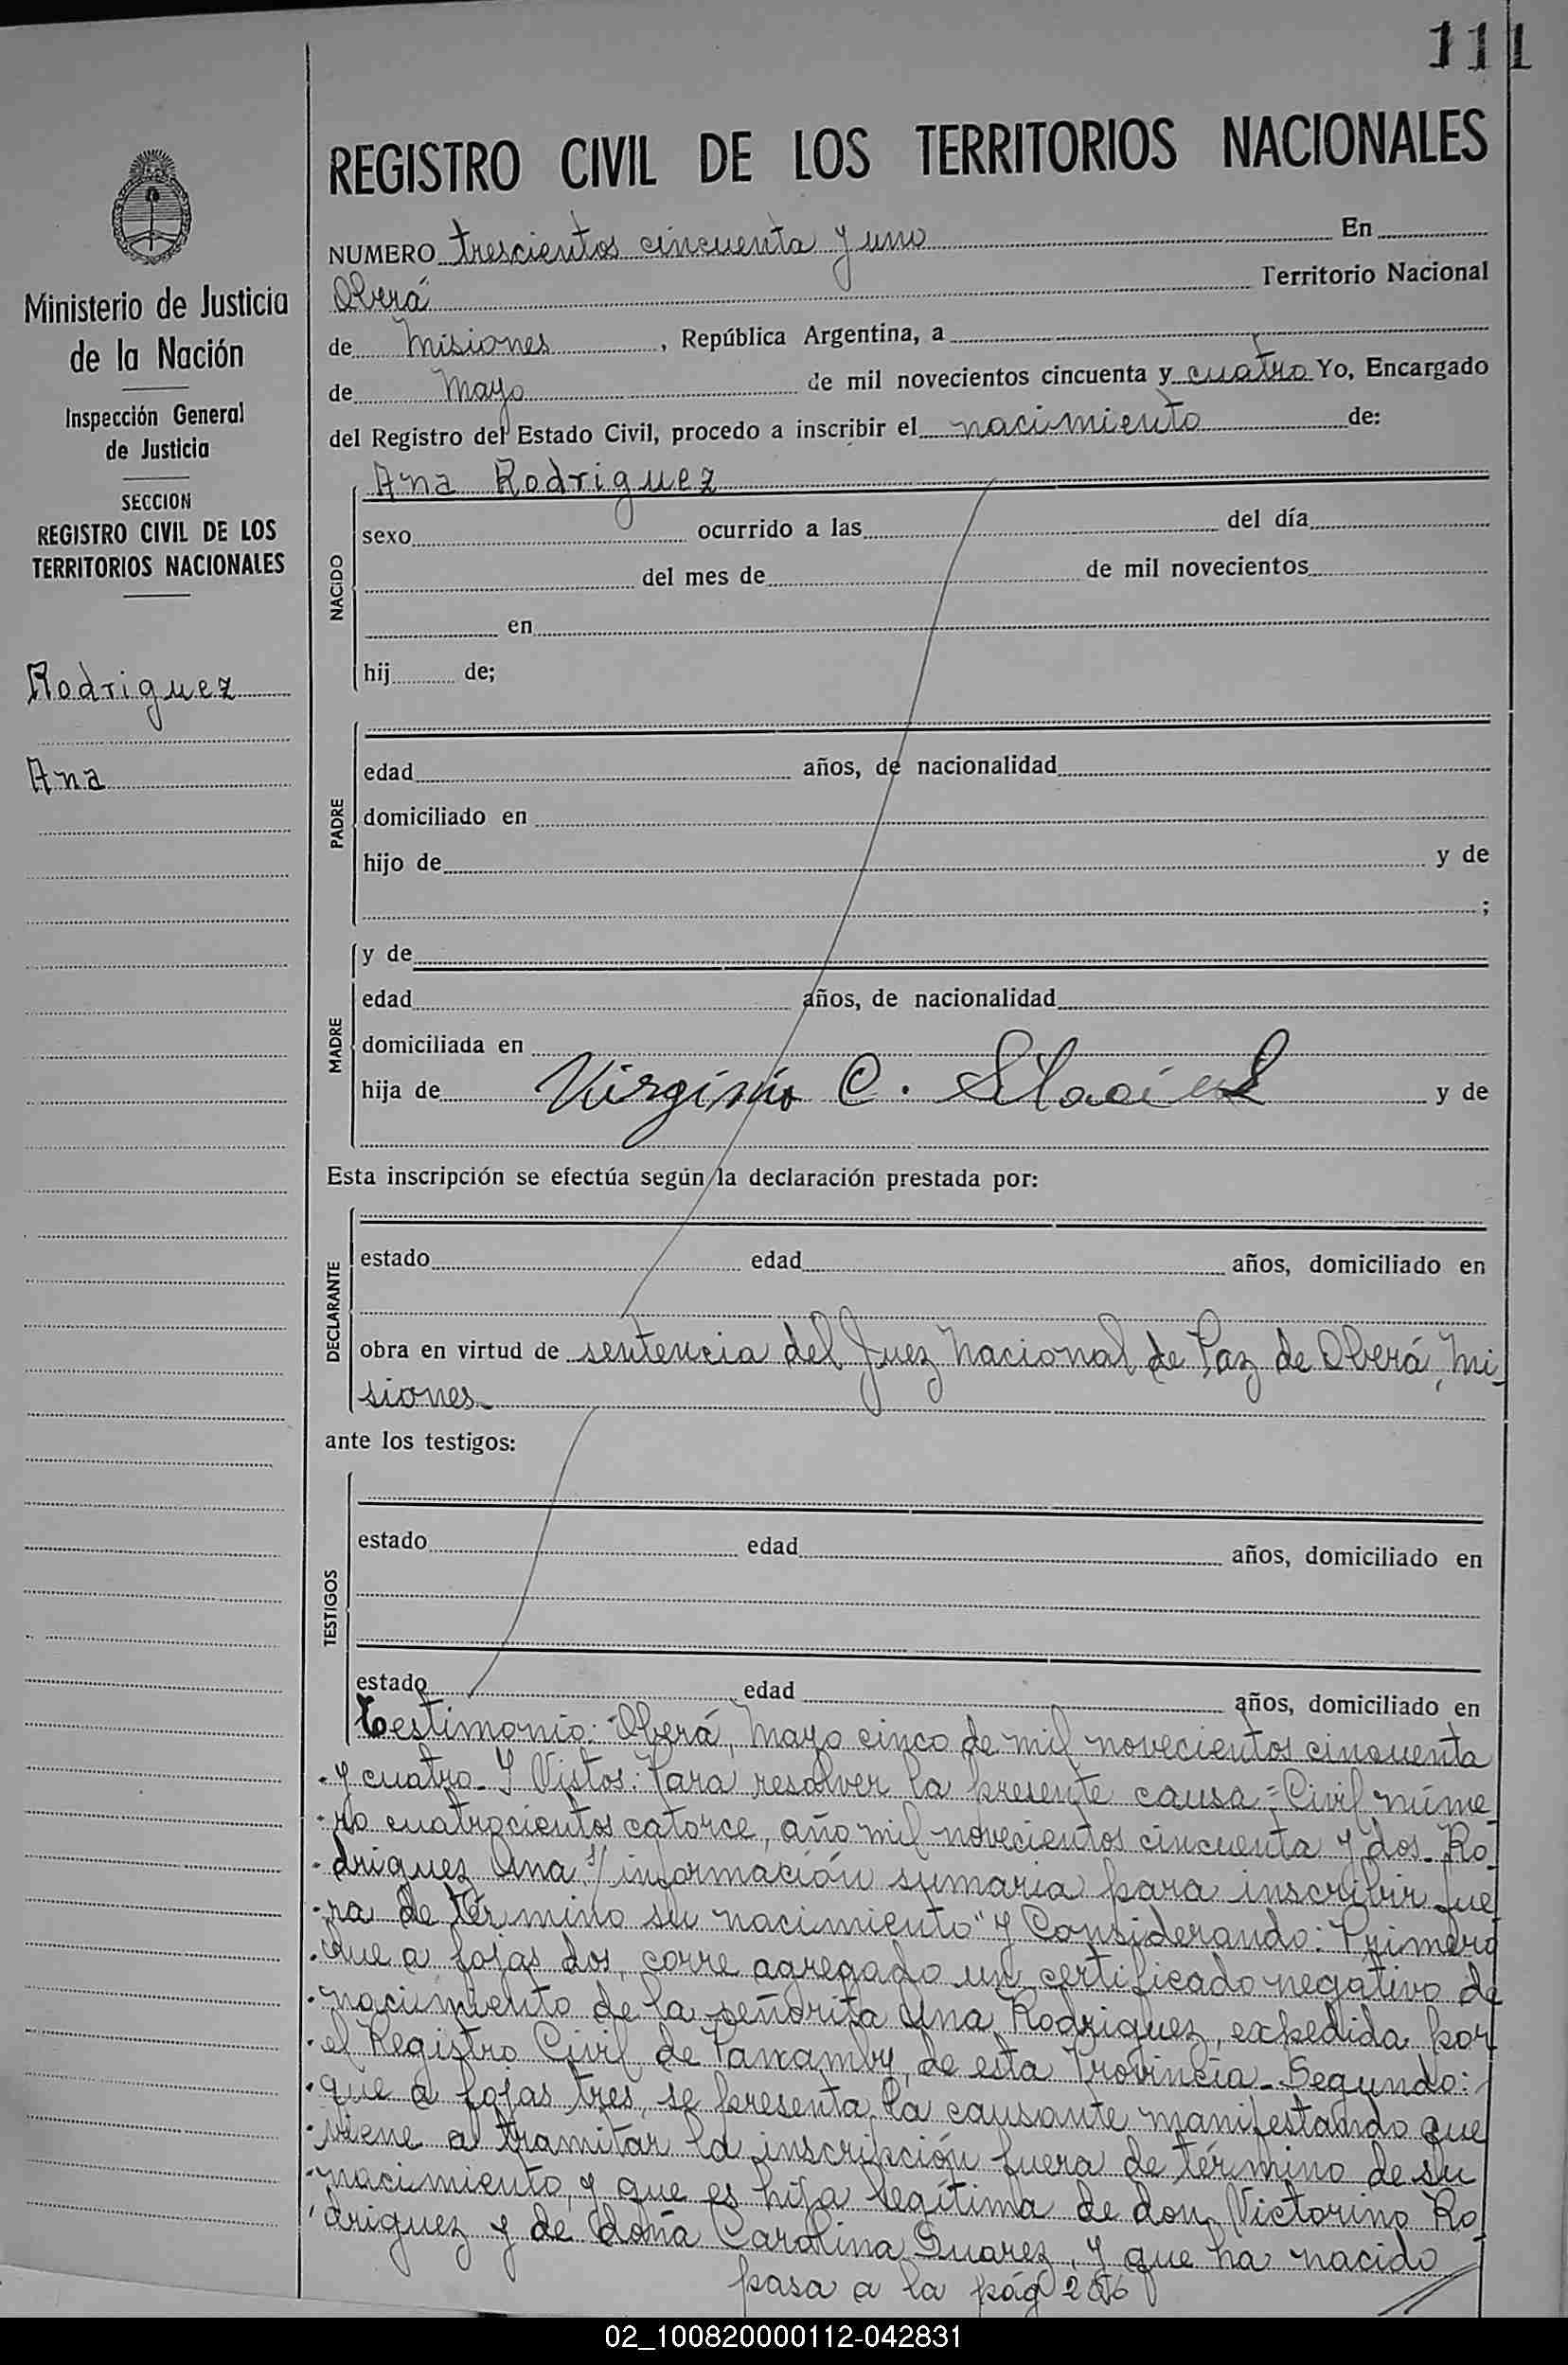 111
REGISTRO CIVIL DE LOS TERRITORIOS NACIONALES
Ministerio de Justicia
de la Nación
Inspección General
de Justicia
SECCION
REGISTRO CIVIL DE LOS
TERRITORIOS NACIONALES
Rodriguez
Ana
NUMERO trescientos cincuenta y uno En
Oberá Territorio Nacional
de Misiones, República Argentina, a
de Mayo de mil novecientos cincuenta y cuatro Yo, Encargado
del Registro del Estado Civil, procedo a inscribir el nacimiento de:
Ana Rodriguez
NACIDO
sexo ocurrido a las del día
del mes de de mil novecientos
en
hij de;
PADRE
edad años, de nacionalidad
domiciliado en
hijo de y de
;
MADRE
y de
edad años, de nacionalidad
domiciliada en
hija de Virginio C. y de
Esta inscripción se efectúa según la declaración prestada por:
DECLARANTE
estado edad años, domiciliado en
obra en virtud de sentencia del Juez Nacional de Paz de Oberá, Mi-
siones.
ante los testigos:
TESTIGOS
estado edad años, domiciliado en
estado edad años, domiciliado en
Testimonio: Oberá, Mayo cinco de mil novecientos cincuenta
y cuatro. Y Vistos: Para resolver la presente causa: Civil núme
ro cuatrocientos catorce, año mil novecientos cincuenta y dos. Ro-
driguez Ana s/ información sumaria para inscribir fue
ra de término su nacimiento" y Considerando: Primero
que a fojas dos, corre agregado un certificado negativo de
nacimiento de la señorita Ana Rodriguez, expedida por
el Registro Civil de Panambi, de esta Provincia. Segundo:
que a fojas tres, se presenta la causante manifestando que
viene a tramitar la inscripción fuera de término de su
nacimiento, y que es hija legítima de don Victorino Ro-
driguez y de doña Carolina Suarez, y que ha nacido
pasa a la pág 256
02_100820000112-042831